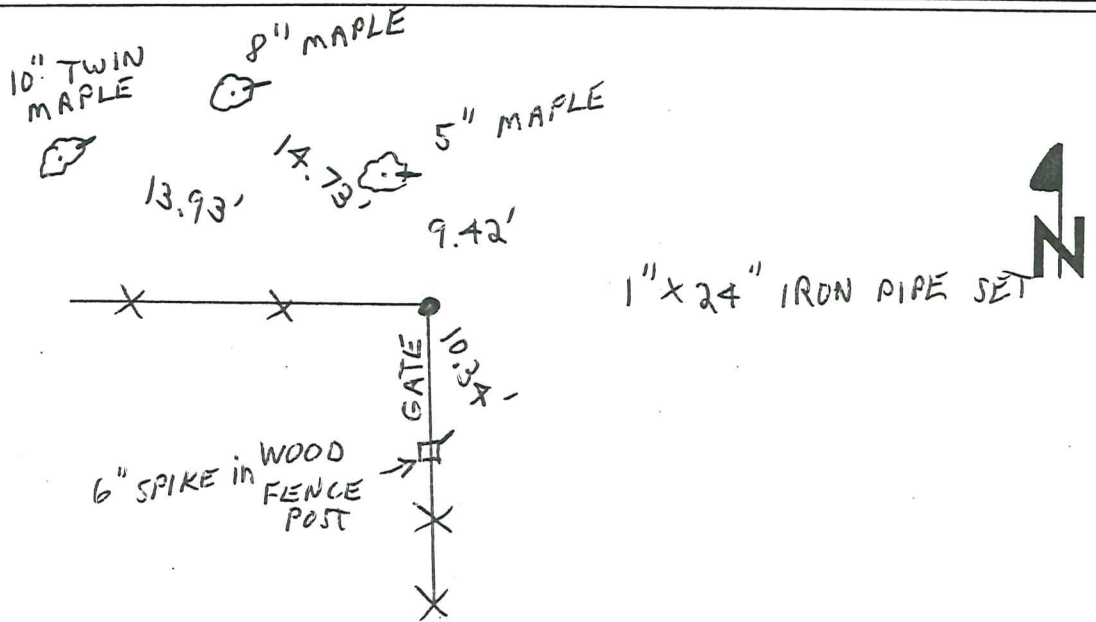 10" TWIN
MAPLE
8" MAPLE
5" MAPLE
13.93'
14.73'
9.42'
N
1" X 24" IRON PIPE SET
GATE
10.34'
6" SPIKE in WOOD
FENCE
POST